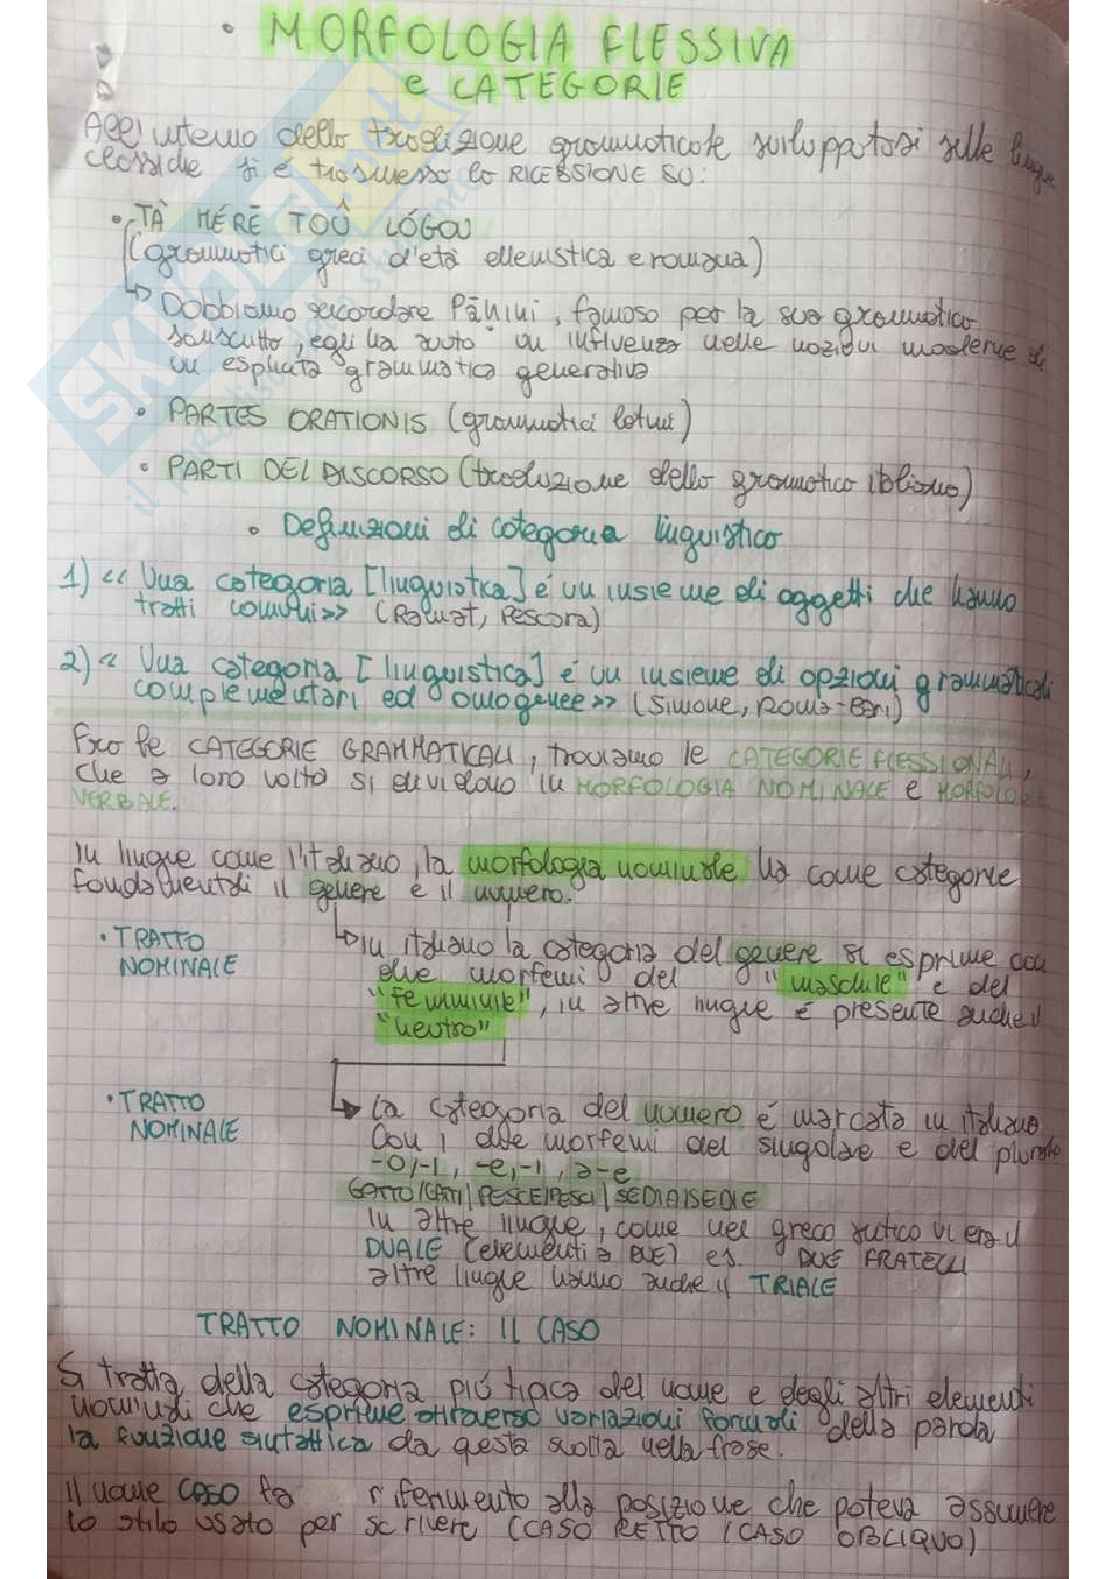 • MORFOLOGIA FLESSIVA
e CATEGORIE
All'interno della tradizione grammaticale sviluppatasi sulle lingue
classiche si é trasmesso la RICESSIONE SU:
• TÀ MÉRĒ TOÛ LÓGOU
(grammatici greci d'età ellenistica e romana)
Dobbiamo Pāṇini, famoso per la sua grammatica
sanscritto, egli ha avuto un influenza nelle nozioni moderne di
un esplicita grammatica generativa
• PARTES ORATIONIS (grammatici latini)
• PARTI DEL DISCORSO (traduzione della grammatica italiana)
• Definizioni di categoria linguistica
1) << Una categoria [linguistica] é un insieme di oggetti che hanno
tratti comuni>> (Ramat, Pescara)
2) << Una categoria [linguistica] é un insieme di opzioni grammaticali
complementari ed omogenee>> (Simone, Roma-Bari)
Fra le CATEGORIE GRAMMATICALI, troviamo le CATEGORIE FLESSIONALI,
che a loro volta si dividono in MORFOLOGIA NOMINALE e MORFOLOGIA
VERBALE.
In lingue come l'italiano, la morfologia nominale ha come categorie
fondamentali il genere e il numero.
• TRATTO
NOMINALE
In italiano la categoria del genere si esprime con
due morfemi del "maschile" e del
"femminile", in altre lingue é presente anche il
"neutro"
• TRATTO
NOMINALE
La categoria del numero é marcata in italiano
con i due morfemi del singolare e del plurale
-o/-i, -e,-i, a-e
GATTO/GATTI/PESCE/PESCI/SEDIA/SEDIE
In altre lingue, come nel greco antico vi era il
DUALE (elementi a DUE) es. DUE FRATELLI
altre lingue hanno anche il TRIALE
TRATTO NOMINALE: IL CASO
Si tratta della categoria piú tipica del nome e degli altri elementi
nominali che esprime attraverso variazioni formali della parola
la funzione sintattica da questa svolta nella frase.
Il nome CASO fa riferimento alla posizione che poteva assumere
lo stilo usato per scrivere (CASO RETTO (CASO OBLIQUO)